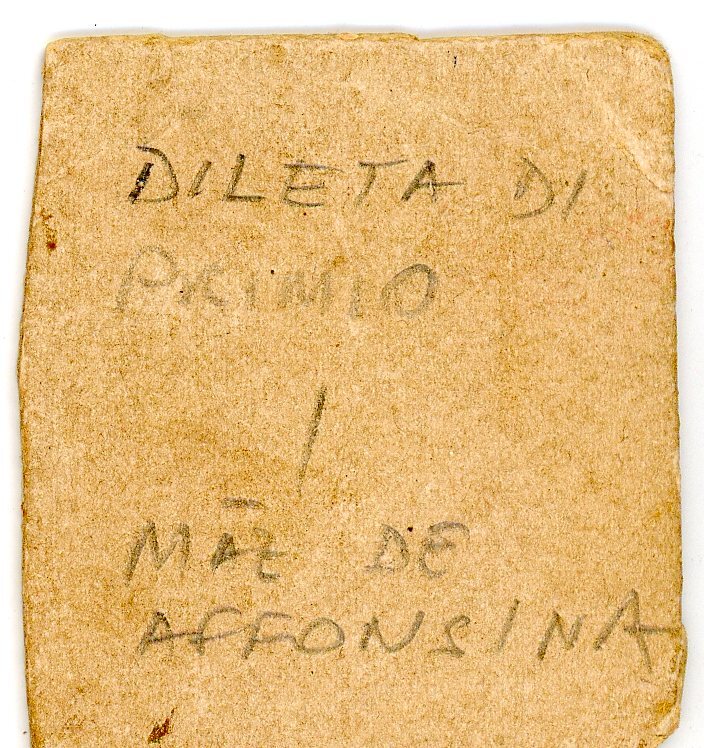 DILETA DI
PRIMIO
/
MÃE DE
AFFONSINA